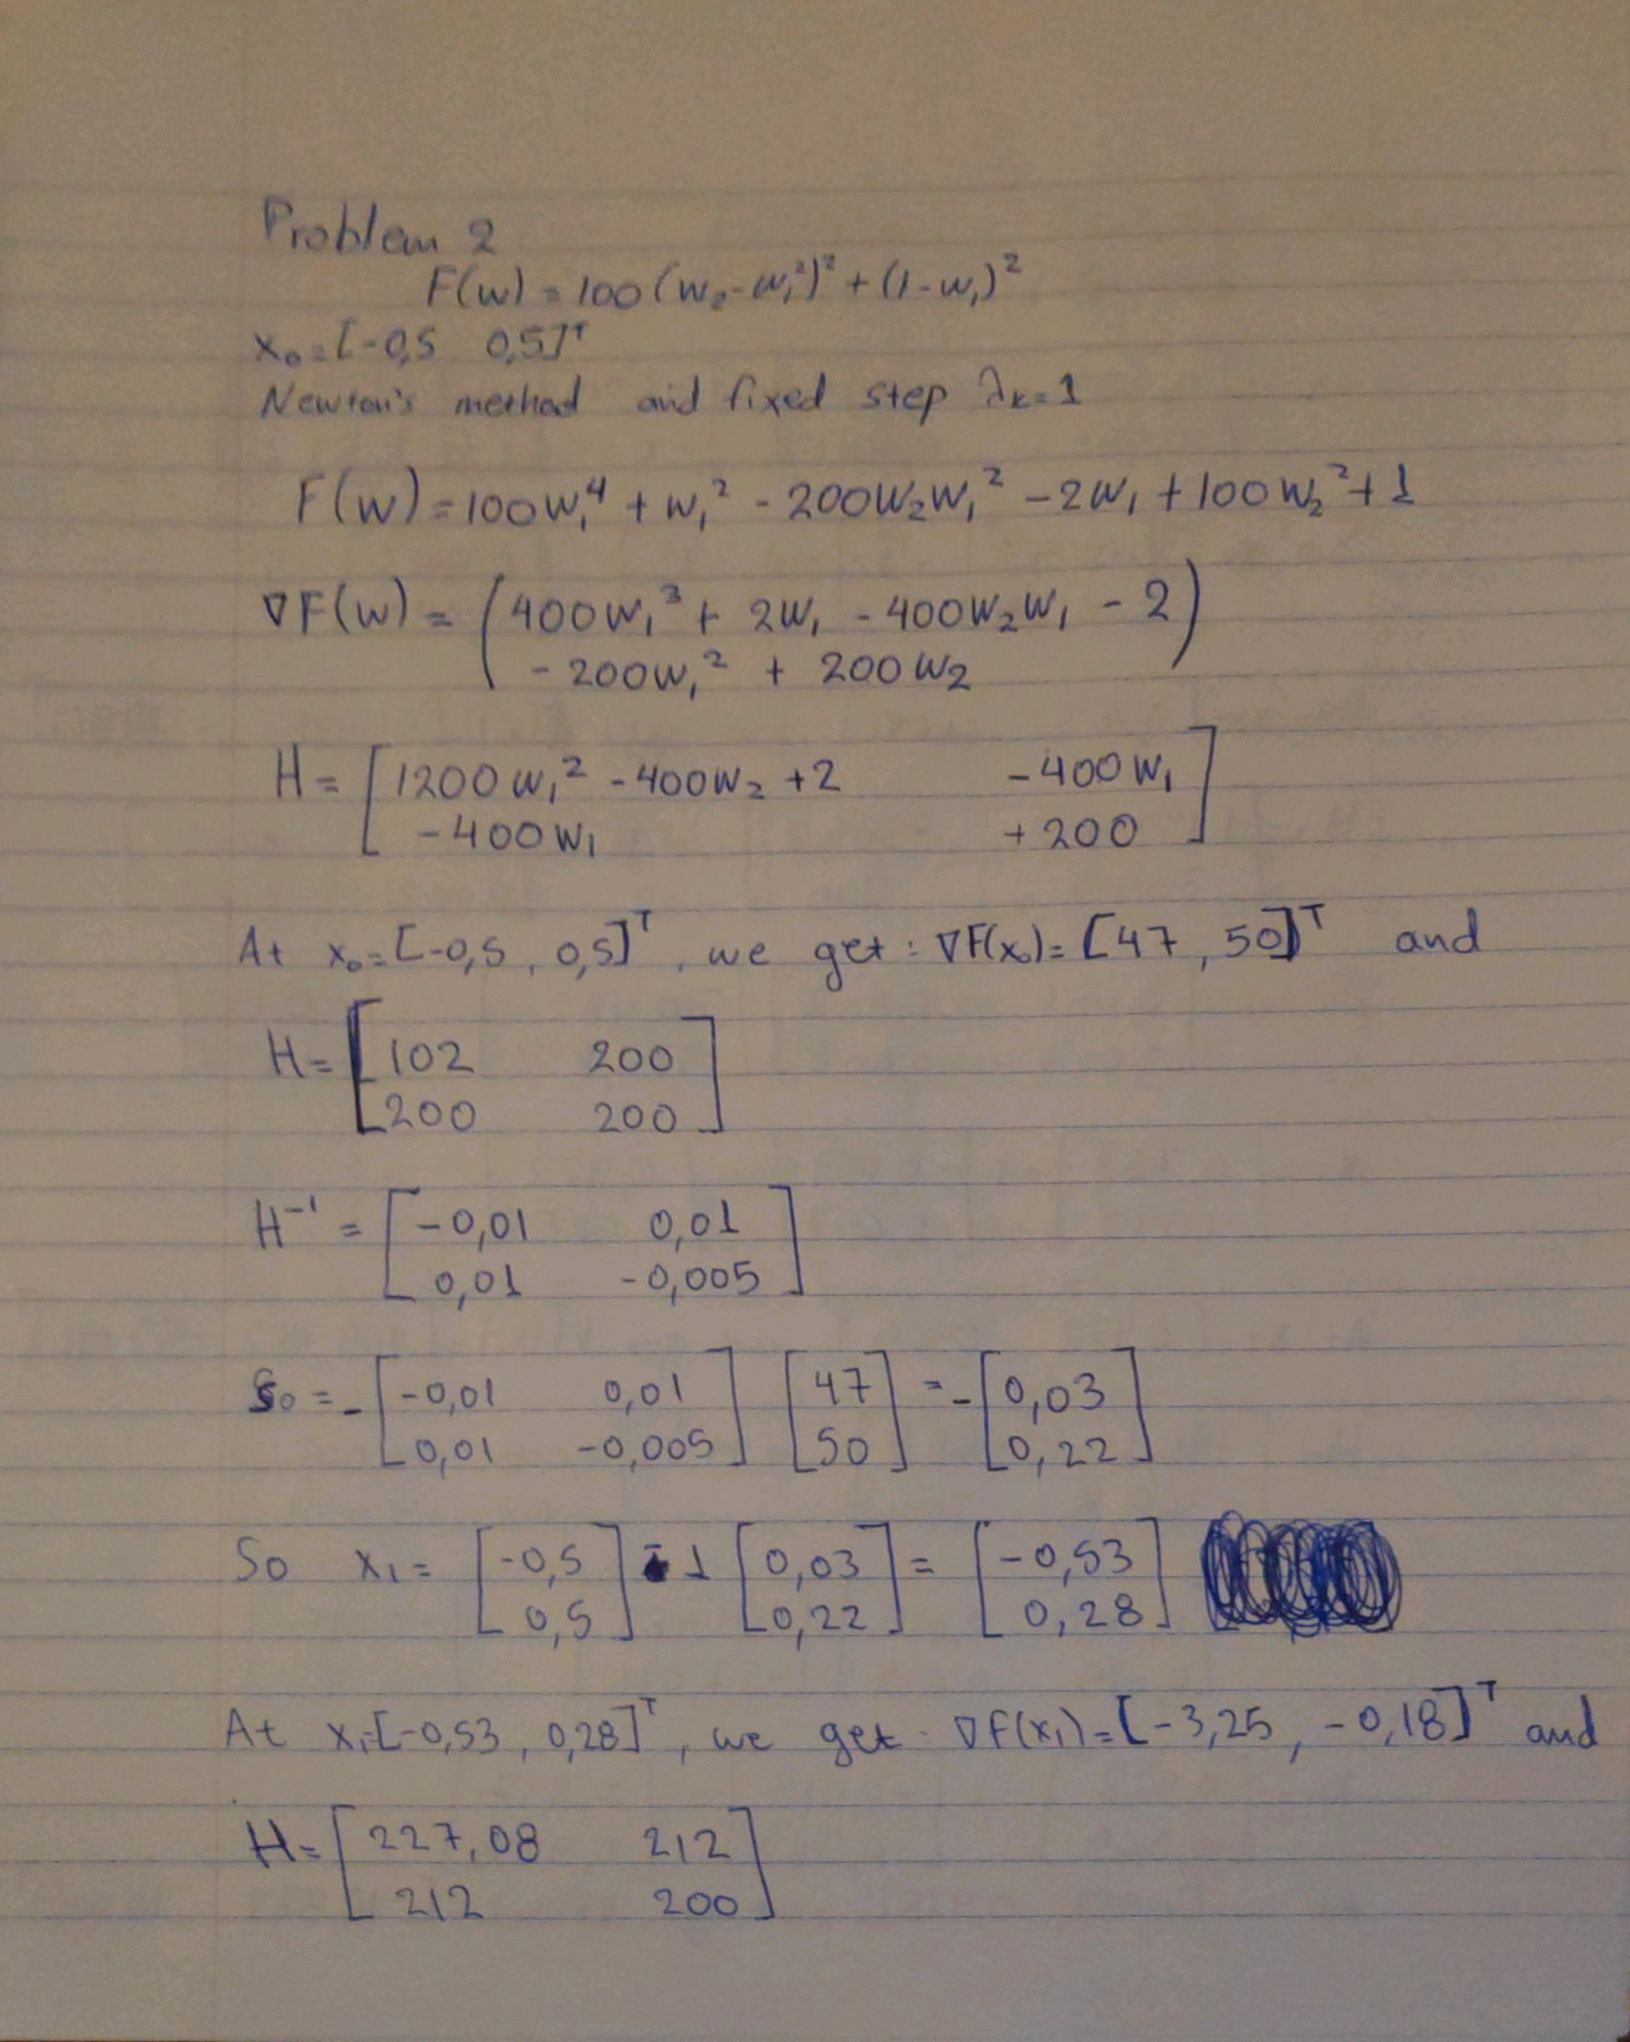 Problem 2
F(w) = 100(w₂-w₁²)² + (1-w₁)²
x₀ = [-0,5 0,5]ᵀ
Newton's method and fixed step λₖ=1
F(w) = 100w₁⁴ + w₁² - 200w₂w₁² - 2w₁ + 100w₂² + 1
∇F(w) = (400w₁³ + 2w₁ - 400w₂w₁ - 2)
-200w₁² + 200w₂
H = [1200w₁² - 400w₂ + 2 -400w₁]
-400w₁ +200
At x₀=[-0,5, 0,5]ᵀ, we get: ∇F(x₀)= [47, 50]ᵀ and
H = [102 200]
200 200
H⁻¹ = [-0,01 0,01]
0,01 -0,005
S₀ = -[-0,01 0,01] [47] = -[0,03]
0,01 -0,005 50 0,22
So x₁ = [-0,5] - 1 [0,03] = [-0,53]
0,5 0,22 0,28
At x₁=[-0,53, 0,28]ᵀ, we get: ∇F(x₁)=[-3,25, -0,18]ᵀ and
H = [227,08 212]
212 200